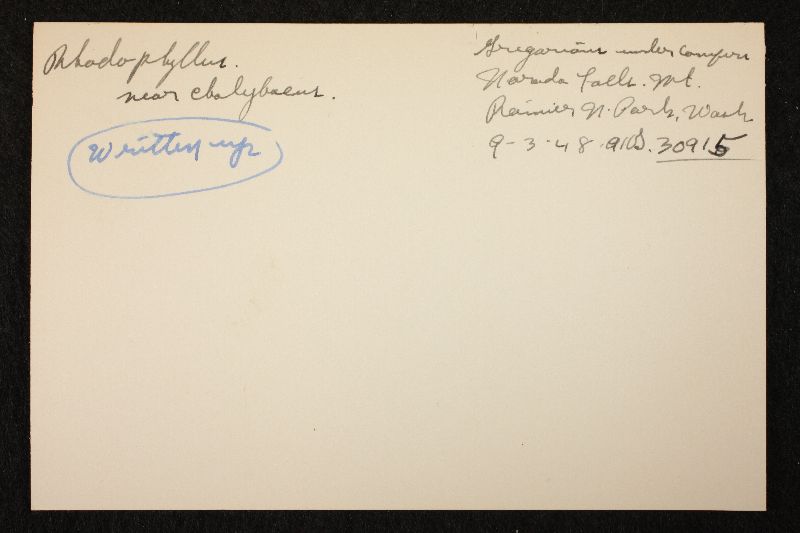 Rhodophyllus.
near chalybaeus.
Written up
Gregarious under conifers
Narada Falls. Mt.
Rainier N. Park, Wash
9-3-48 AHS. 30915